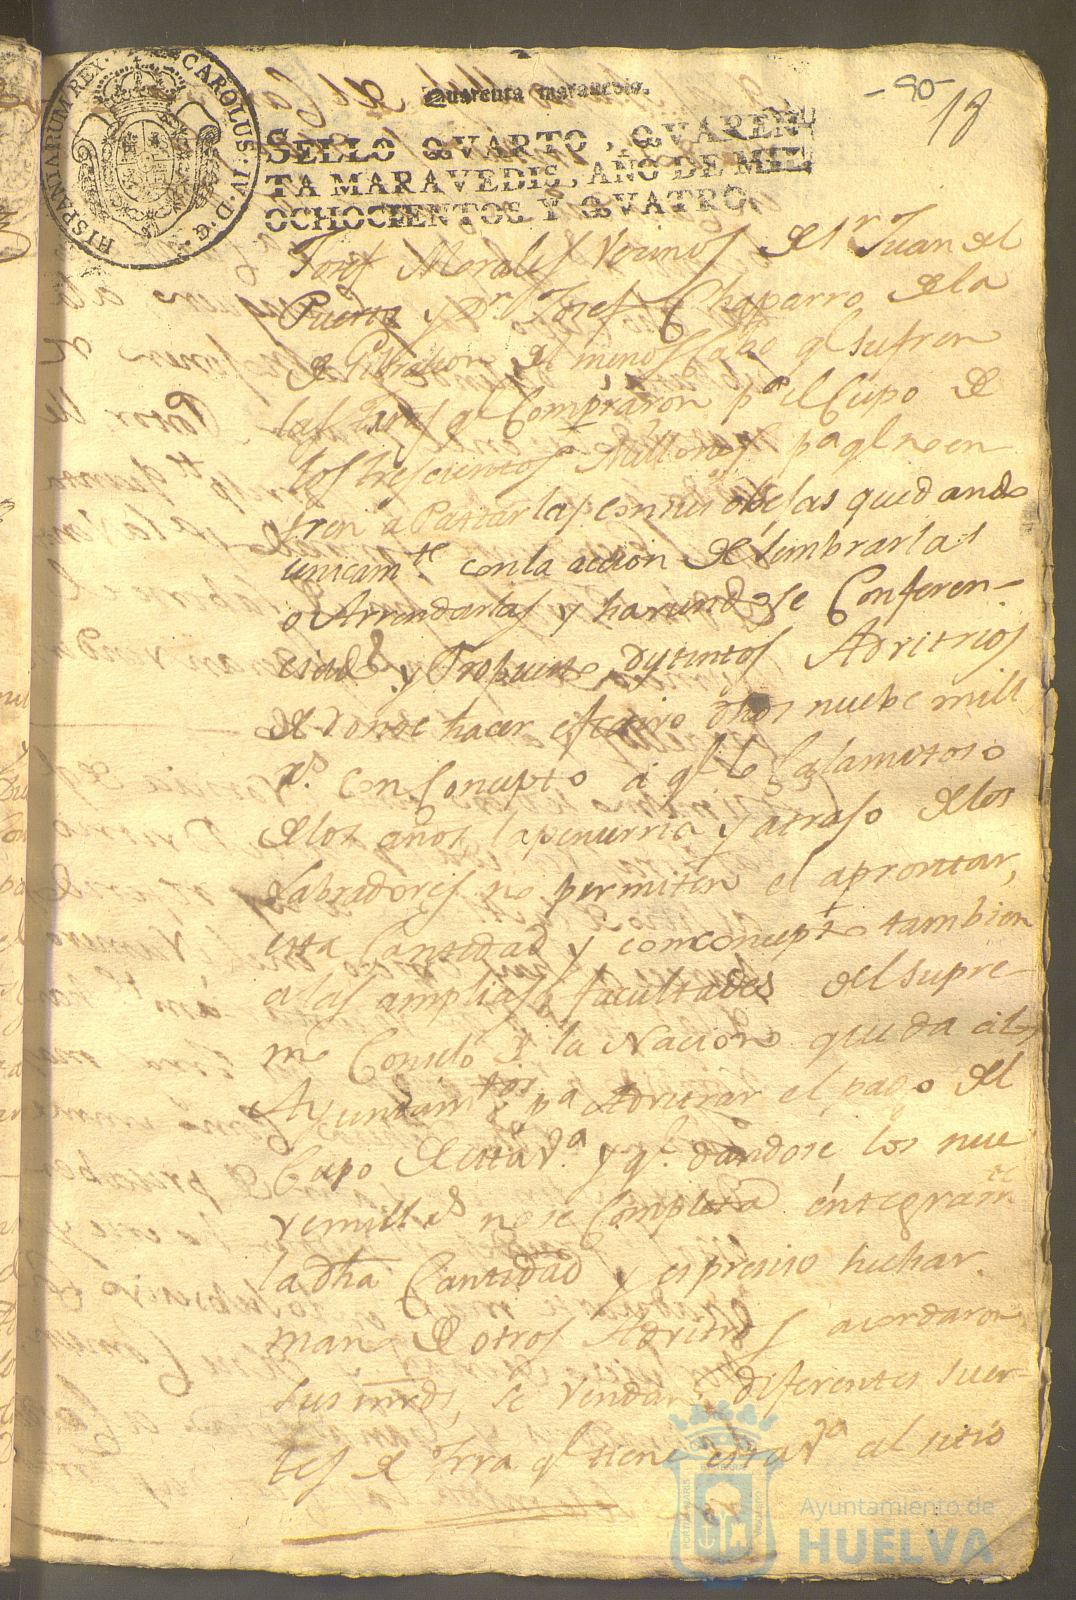 HISPANIARUM REX. CAROLUS. IV. D. G.
Quarenta maravedis.
- 90 -
18
SELLO QVARTO, QVAREN-
TA MARAVEDIS, AÑO DE MIL
OCHOCIENTOS Y QVATRO.
Josef Morales Vecinos de Sn. Juan del
Puerto y Dn. Josef Chaparro de la
de Gibraleon, el menoscabo qe. sufren
las que Compraron pa. el Cupo de
los trescientos Millones pa qe. no en
tren a Pastar las de ellas quedando
unicamte. con la accion de sembrarlas
o Arrendarlas y haviendose Conferen-
ciado y Propuesto dystintos Adritrios
de donde hacer efectivo dhos nuebe mill
rs. con Concepto a qe. lo Calamitoso
de los años la penurria y atraso de los
Labradores no permiten el aprontar,
esta Cantidad y con concepto tambien
a las amplias facultades del Supre-
mo Consejo de la Nacion que da a los
Ayuntamtos. pa. Adritrar el pago del
Cupo de esta Va. y qe. dandose los nue
ve mill rs. no se Completa entegramte.
la dha Cantidad y es presiso hechar
mano de otros Adritrios acordaron
sus mrds, se vendan diferentes suer-
tes de trra qe. tiene esta Va. al sitio
Ayuntamiento de
HUELVA